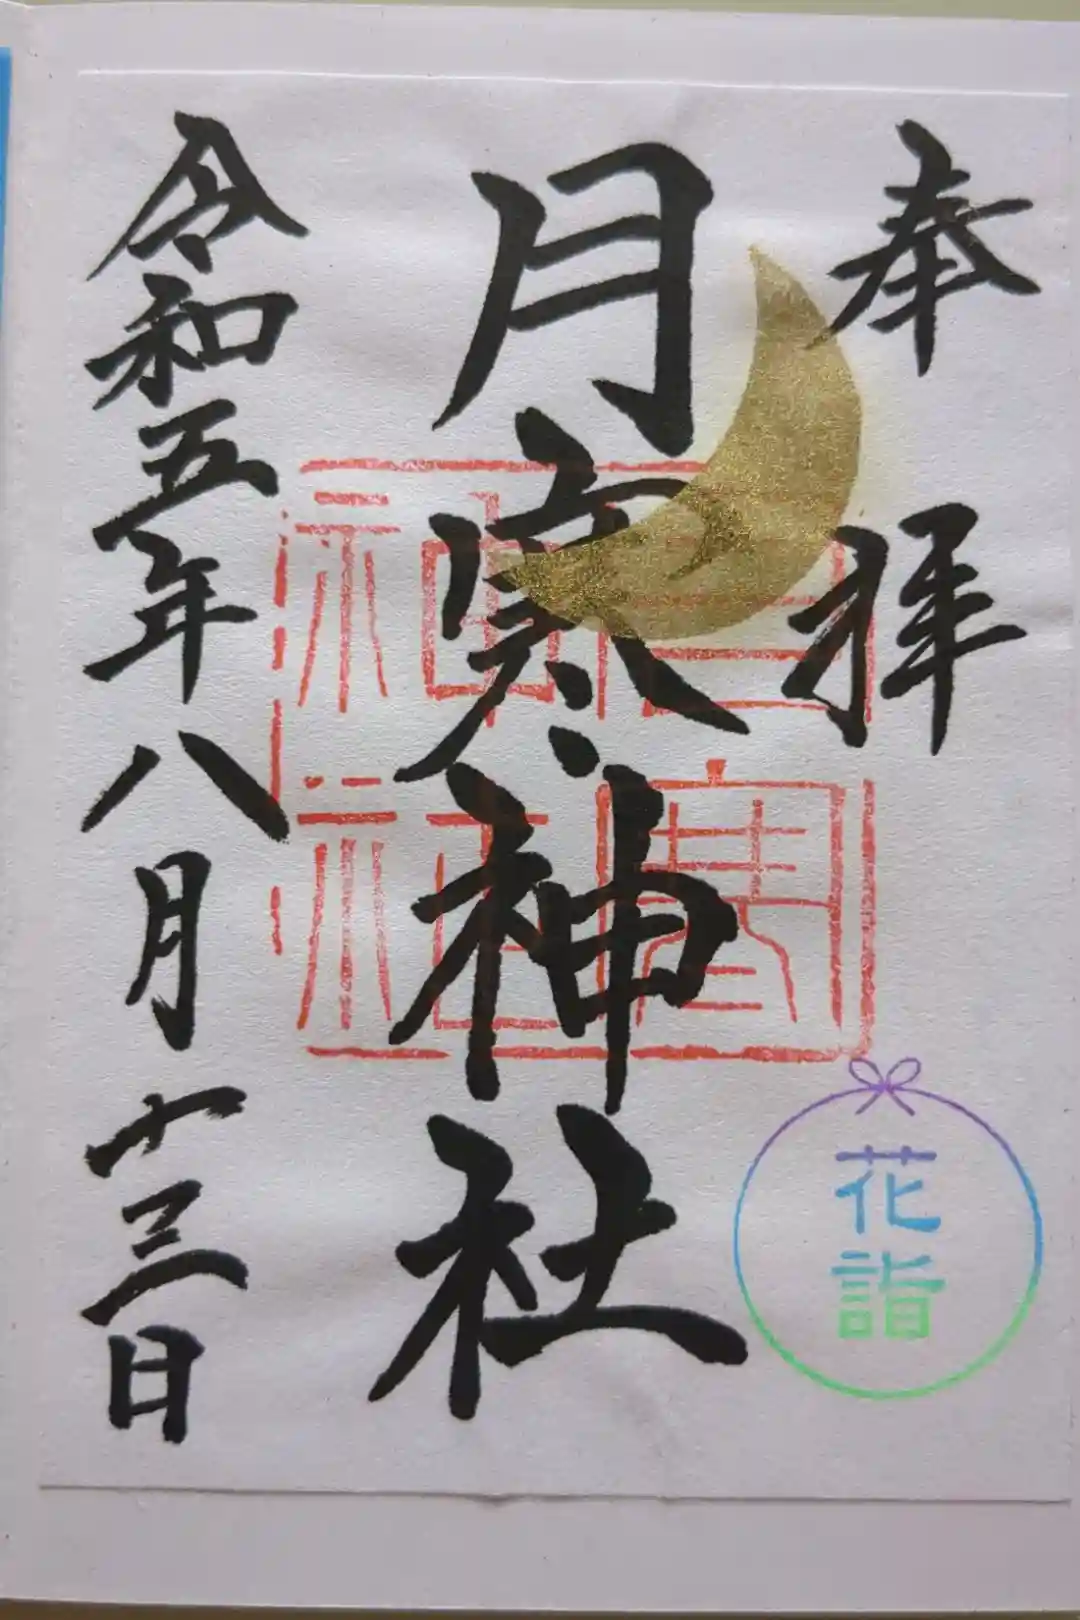 奉拝
月寒神社
月寒神社
令和五年八月十三日
花詣